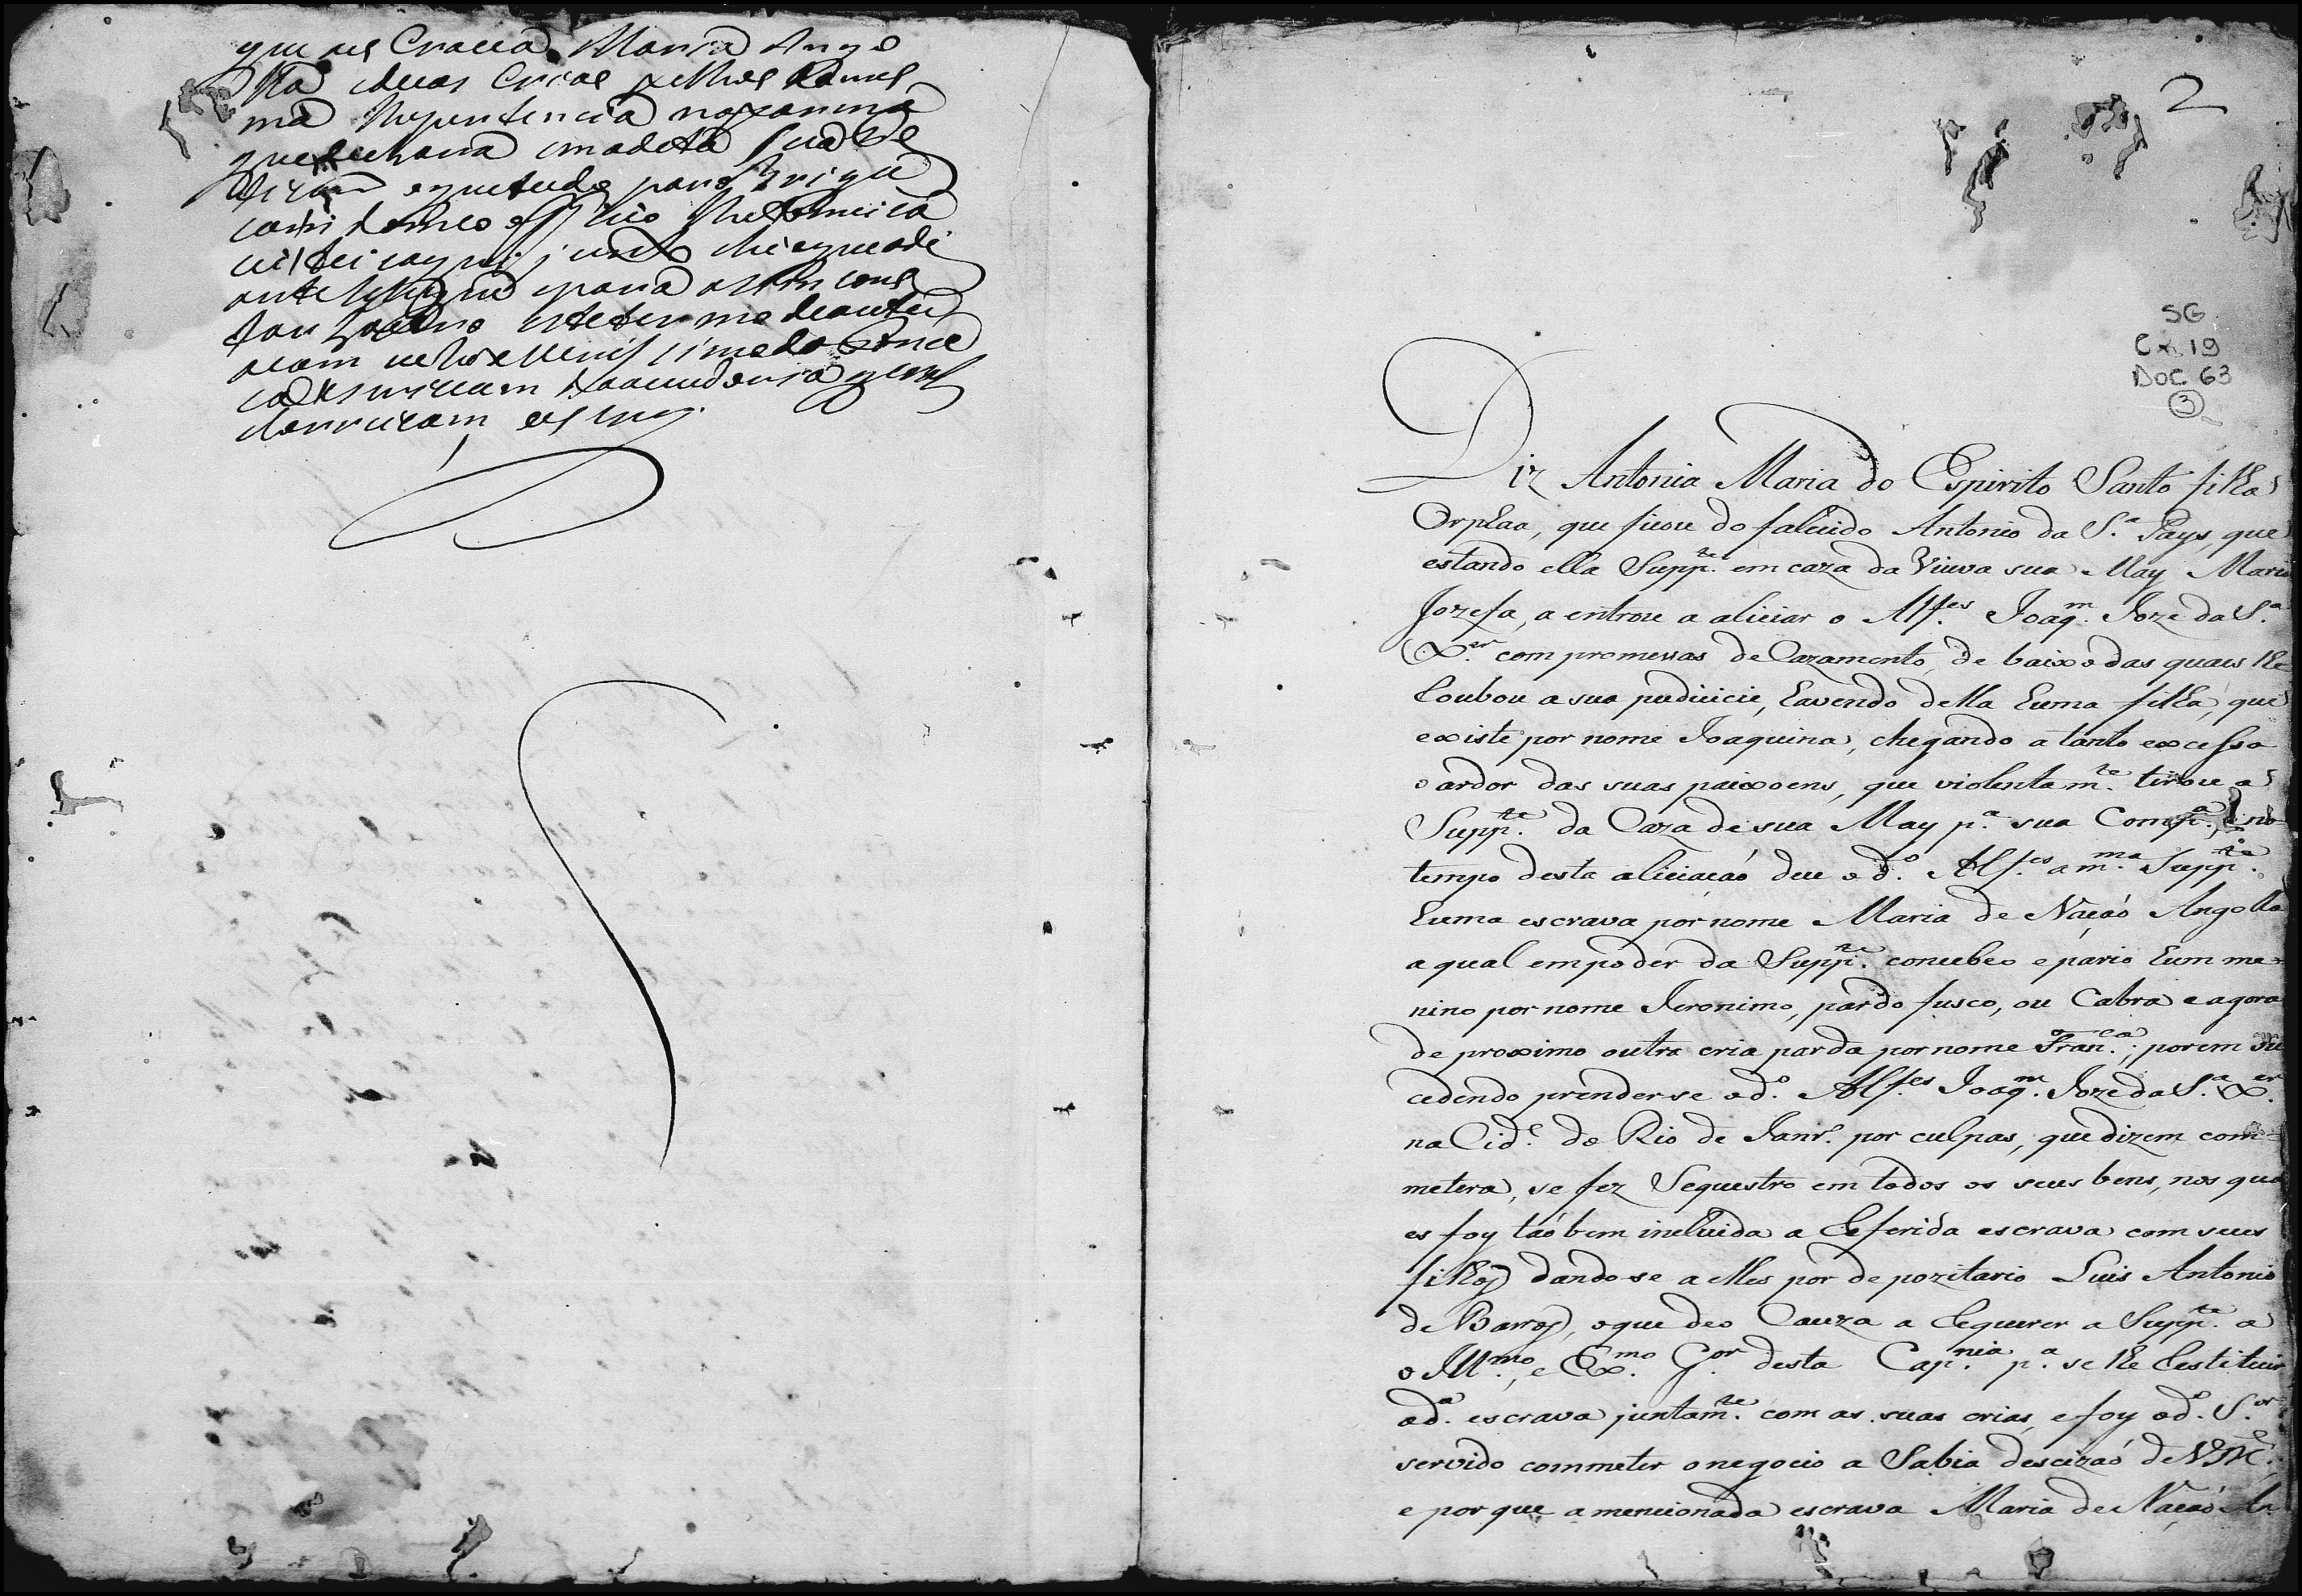 que us Cravad Maria Ango
lla eduas Crias filhos dames
ma Requerencia na forma
que declara emadita sua Pe
tição e que tudo para
aqui junto de que
e para assim cons
tar faço este termo de autu
acam
escrivam da ouvidoria geral
e escrivy
2
SG
Cx. 19
DOC. 63
3
Diz Antonia Maria do Espirito Santo filha
Orphaa, que ficou do falecido Antonio da S.ª Pays, que
estando ella Supp.te em caza da Viuva sua May Maria
Jozefa, a entrou a aliciar o Alf.es Joaq.m Joze da S.ª
X.er com promessas de Cazamento, de baixo das quais lhe
Roubou a sua pudicicie, havendo della huma filha, que
existe por nome Joaquina, chegando a tanto excesso
o ardor das suas paixoens, que violentam.te tirou a
Supp.te da Caza de sua May p.ª sua Comp.ª, e no
tempo desta aliciaçaó deu o d.º Alf.es a m.ma Supp.te
huma escrava por nome Maria de Naçaó Angolla
a qual em poder da Supp.te concebeo e pario hum me-
nino por nome Jeronimo, pardo fusco, ou Cabra e agora
de proximo outra cria parda por nome Fran.ca; porem su
cedendo prender-se o d.º Alf.es Joaq.m Joze da S.ª X.er
na Cid.e do Rio de Janr.º por culpas, que dizem com-
metera, se fez Sequestro em todos os seus bens, nos qua
es foy taóbem incluida a Referida escrava com seus
filhos dando-se a elles por depozitario Luis Antonio
de Barros, o que deo Cauza a Requerer a Supp.te a
o Ill.mo, e Ex.mo G.or desta Cap.nia p.ª se lhe Restituir
a d.ª escrava juntam.te com as suas crias, e foy o d.º S.or
servido commeter o negocio a Sabia descizaó de VM.ce,
e por que a mencionada escrava Maria de Naçaó An